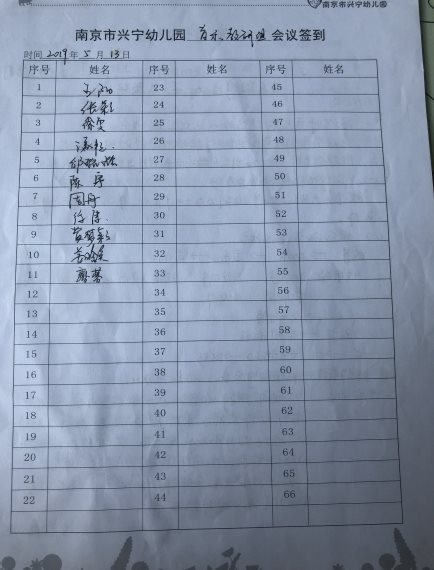 南京市兴宁幼儿园
南京市兴宁幼儿园 音乐教研组 会议签到
时间 2019 年 5 月 13 日
序号 姓名 序号 姓名 序号 姓名
1 23 45
2 张彩 24 46
3 25 47
4 26 48
5 27 49
6 陈宁 28 50
7 周丹 29 51
8 30 52
9 31 53
10 32 54
11 33 55
12 34 56
13 35 57
14 36 58
15 37 59
16 38 60
17 39 61
18 40 62
19 41 63
20 42 64
21 43 65
22 44 66